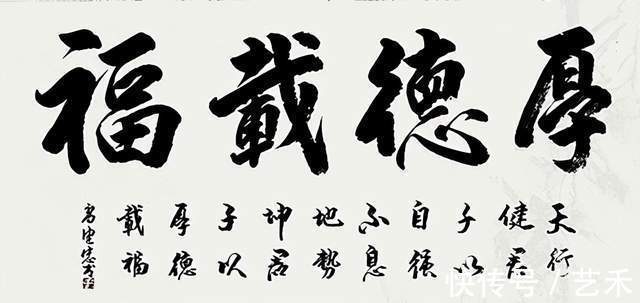 厚德載福
天行
健君
子以
自强
不息
地勢
坤君
子以
厚德
載福
快传号 / 艺禾